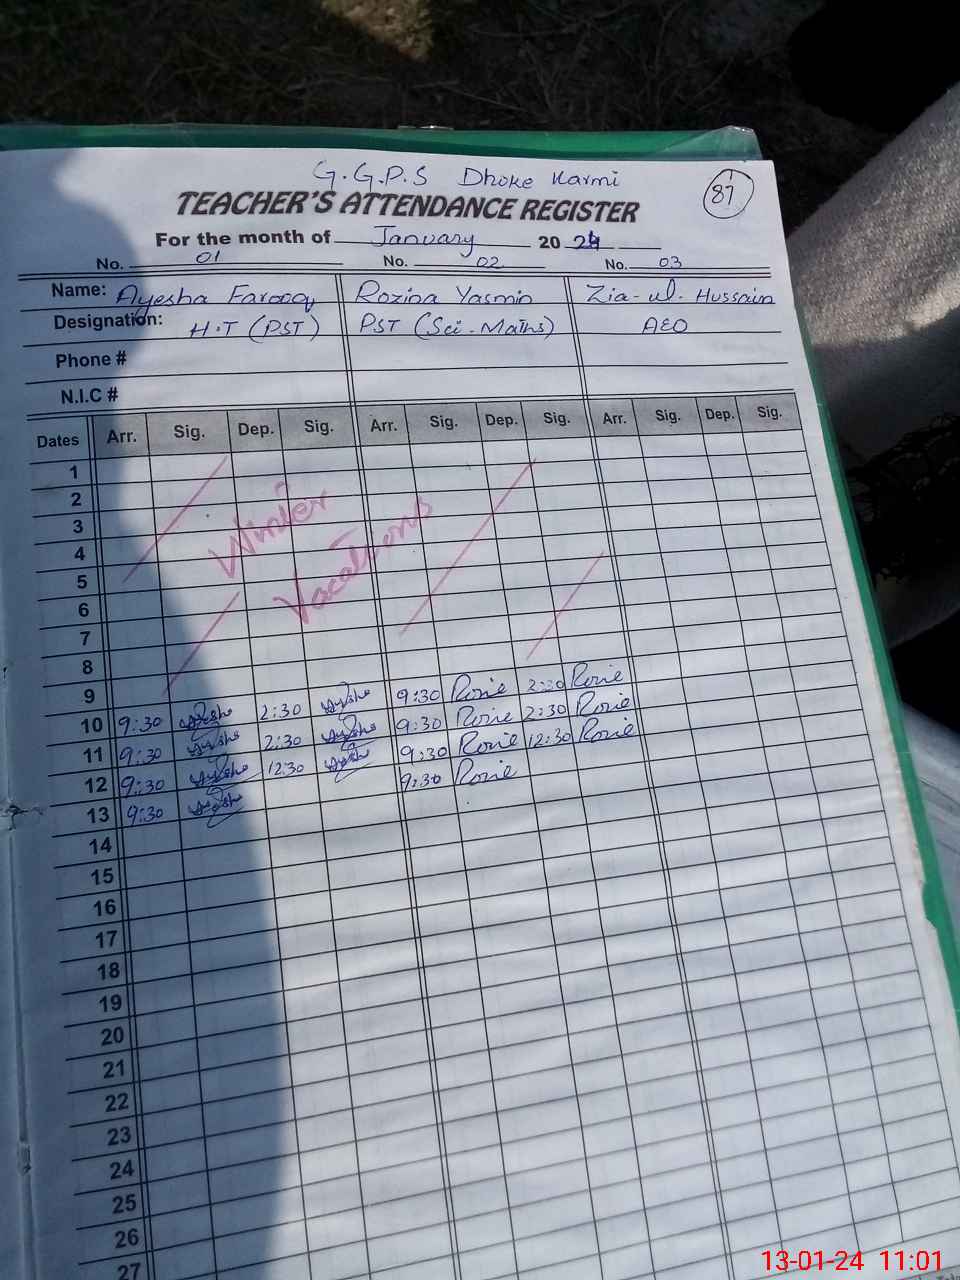 G.G.P.S Dhoke Karmi
87
TEACHER'S ATTENDANCE REGISTER
For the month of January 2024
No. 01 No. 02 No. 03
Name: Ayesha Farooq Rozina Yasmin Zia-ul-Hussain
Designation: H.T (PST) PST (Sci-Maths) AEO
Phone #
N.I.C #
Dates Arr. Sig. Dep. Sig. Arr. Sig. Dep. Sig. Arr. Sig. Dep. Sig.
1
2
3
4
5
6
7
8
Winter
Vacations
9
10 9:30 Ayesha 2:30 Ayesha 9:30 Rozie 2:30 Rozie
11 9:30 Ayesha 2:30 Ayesha 9:30 Rozie 2:30 Rozie
12 9:30 Ayesha 12:30 Ayesha 9:30 Rozie 12:30 Rozie
13 9:30 Ayesha 9:30 Rozie
14
15
16
17
18
19
20
21
22
23
24
25
26
27
13-01-24 11:01